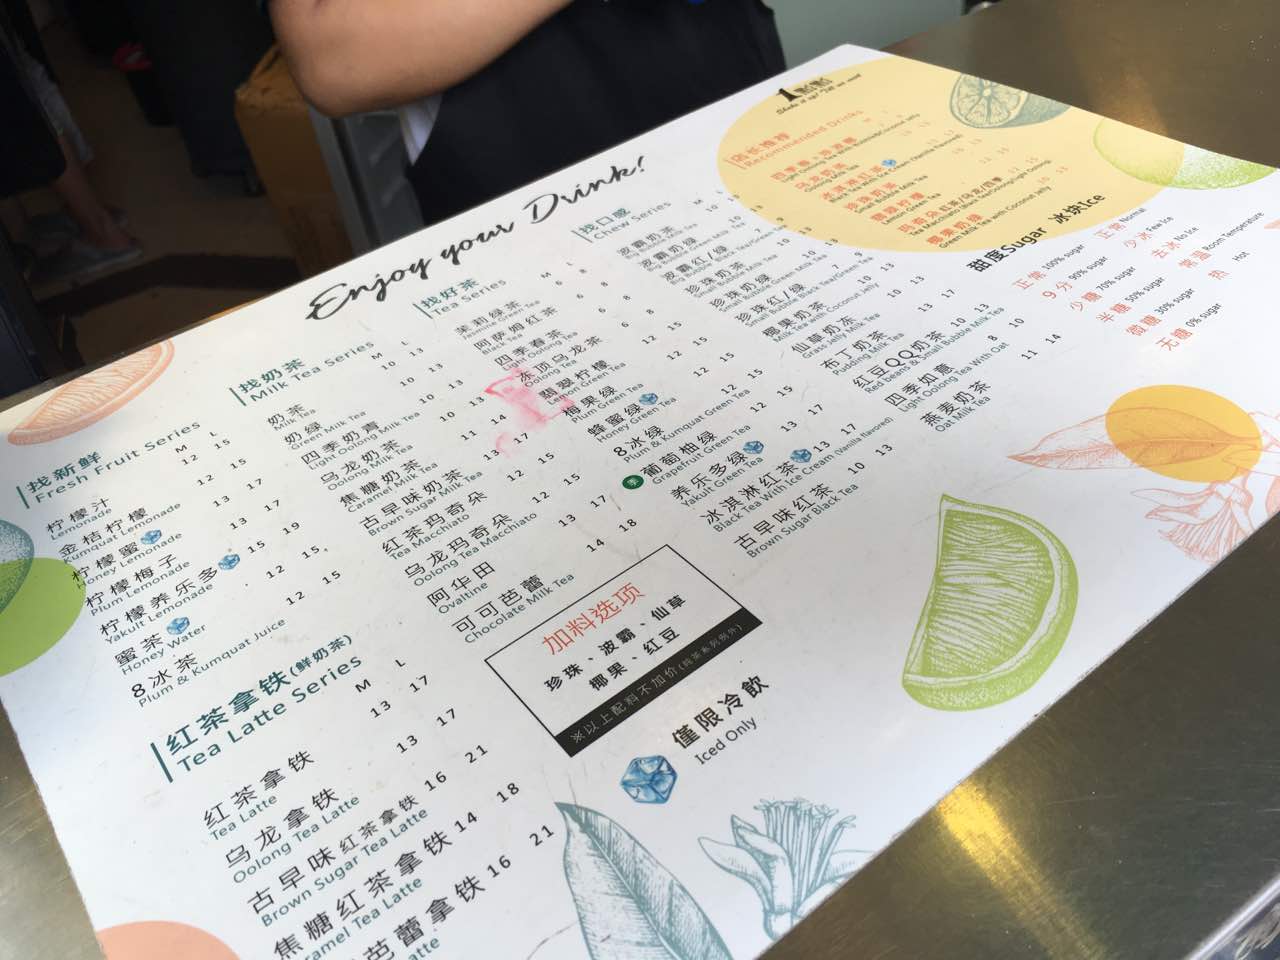 Enjoy your Drink!
找新鲜
Fresh Fruit Series
M L
柠檬汁 12 15
Lemonade
金桔柠檬 12 15
Kumquat Lemonade
柠檬蜜 13 17
Honey Lemonade
柠檬梅子 13 17
Plum Lemonade
柠檬养乐多 15 19
Yakult Lemonade
蜜茶 12 15
Honey Water
8冰茶 12 15
Plum & Kumquat Juice
红茶拿铁(鲜奶茶)
Tea Latte Series
M L
红茶拿铁 13 17
Tea Latte
乌龙拿铁 13 17
Oolong Tea Latte
古早味红茶拿铁 16 21
Brown Sugar Tea Latte
焦糖红茶拿铁 14 18
ramel Tea Latte
芭蕾拿铁 16 21
atte
找奶茶
Milk Tea Series
M L
奶茶 10 13
Milk Tea
奶绿 10 13
Green Milk Tea
四季奶青 10 13
Light Oolong Milk Tea
乌龙奶茶 10 13
Oolong Milk Tea
焦糖奶茶 11 14
Caramel Milk Tea
古早味奶茶 13 17
Brown Sugar Milk Tea
红茶玛奇朵 12 15
Tea Macchiato
乌龙玛奇朵 12 15
Oolong Tea Macchiato
阿华田 13 17
Ovaltine
可可芭蕾 14 18
Chocolate Milk Tea
找好茶
Tea Series
M L
茉莉绿茶 6 8
Jasmine Green Tea
阿萨姆红茶 6 8
Black Tea
四季春茶 6 8
Light Oolong Tea
冻顶乌龙茶 6 8
Oolong Tea
翡翠柠檬 12 15
Lemon Green Tea
梅果绿 12 15
Plum Green Tea
蜂蜜绿 12 15
Honey Green Tea
8冰绿 12 15
Plum & Kumquat Green Tea
季 葡萄柚绿 12 15
Grapefruit Green Tea
养乐多绿 13 17
Yakult Green Tea
冰淇淋红茶 13 17
Black Tea With Ice Cream (Vanilla flavored)
古早味红茶 10 13
Brown Sugar Black Tea
找口感
Chew Series
M L
波霸奶茶 10 13
Big Bubble Milk Tea
波霸奶绿
Big Bubble Green Milk Tea
波霸红/绿
Big Bubble Black Tea/Green
珍珠奶茶 10 13
Small Bubble Milk Tea
珍珠奶绿 10 13
Small Bubble Green Milk Tea
珍珠红/绿 7 9
Small Bubble Black Tea/Green Tea
椰果奶茶 10 13
Milk Tea with Coconut Jelly
仙草奶冻 10 13
Grass Jelly Milk Tea
布丁奶茶 13 17
Pudding Milk Tea
红豆QQ奶茶 10 13
Red beans & Small Bubble Milk Tea
四季如意 8 10
Light Oolong Tea With Oat
燕麦奶茶 11 14
Oat Milk Tea
店长推荐
Recommended Drinks
乌龙奶茶
Oolong Milk Tea
冰淇淋红茶
Black Tea With Ice Cream (Vanilla flavored)
珍珠奶茶
Small Bubble Milk Tea
翡翠柠檬
Lemon Green Tea
玛奇朵 红茶/乌龙/四季
Tea Macchiato (Black Tea/Oolong/light Oolong)
椰果奶绿
Green Milk Tea with Coconut Jelly
甜度Sugar 冰块Ice
正常 100% sugar 正常 Normal
9分 90% sugar 少冰 Few Ice
少糖 70% sugar 去冰 No Ice
半糖 50% sugar 常温 Room Temperature
微糖 30% sugar 热 Hot
无糖 0% sugar
加料选项
珍珠、波霸、仙草
椰果、红豆
※以上配料不加价(纯茶系列例外)
僅限冷飲
Iced Only